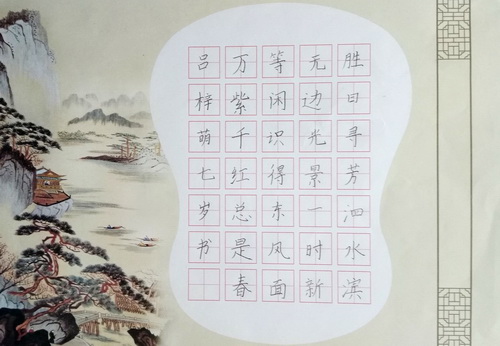 胜日寻芳泗水滨
无边光景一时新
等闲识得东风面
万紫千红总是春
吕梓萌七岁书